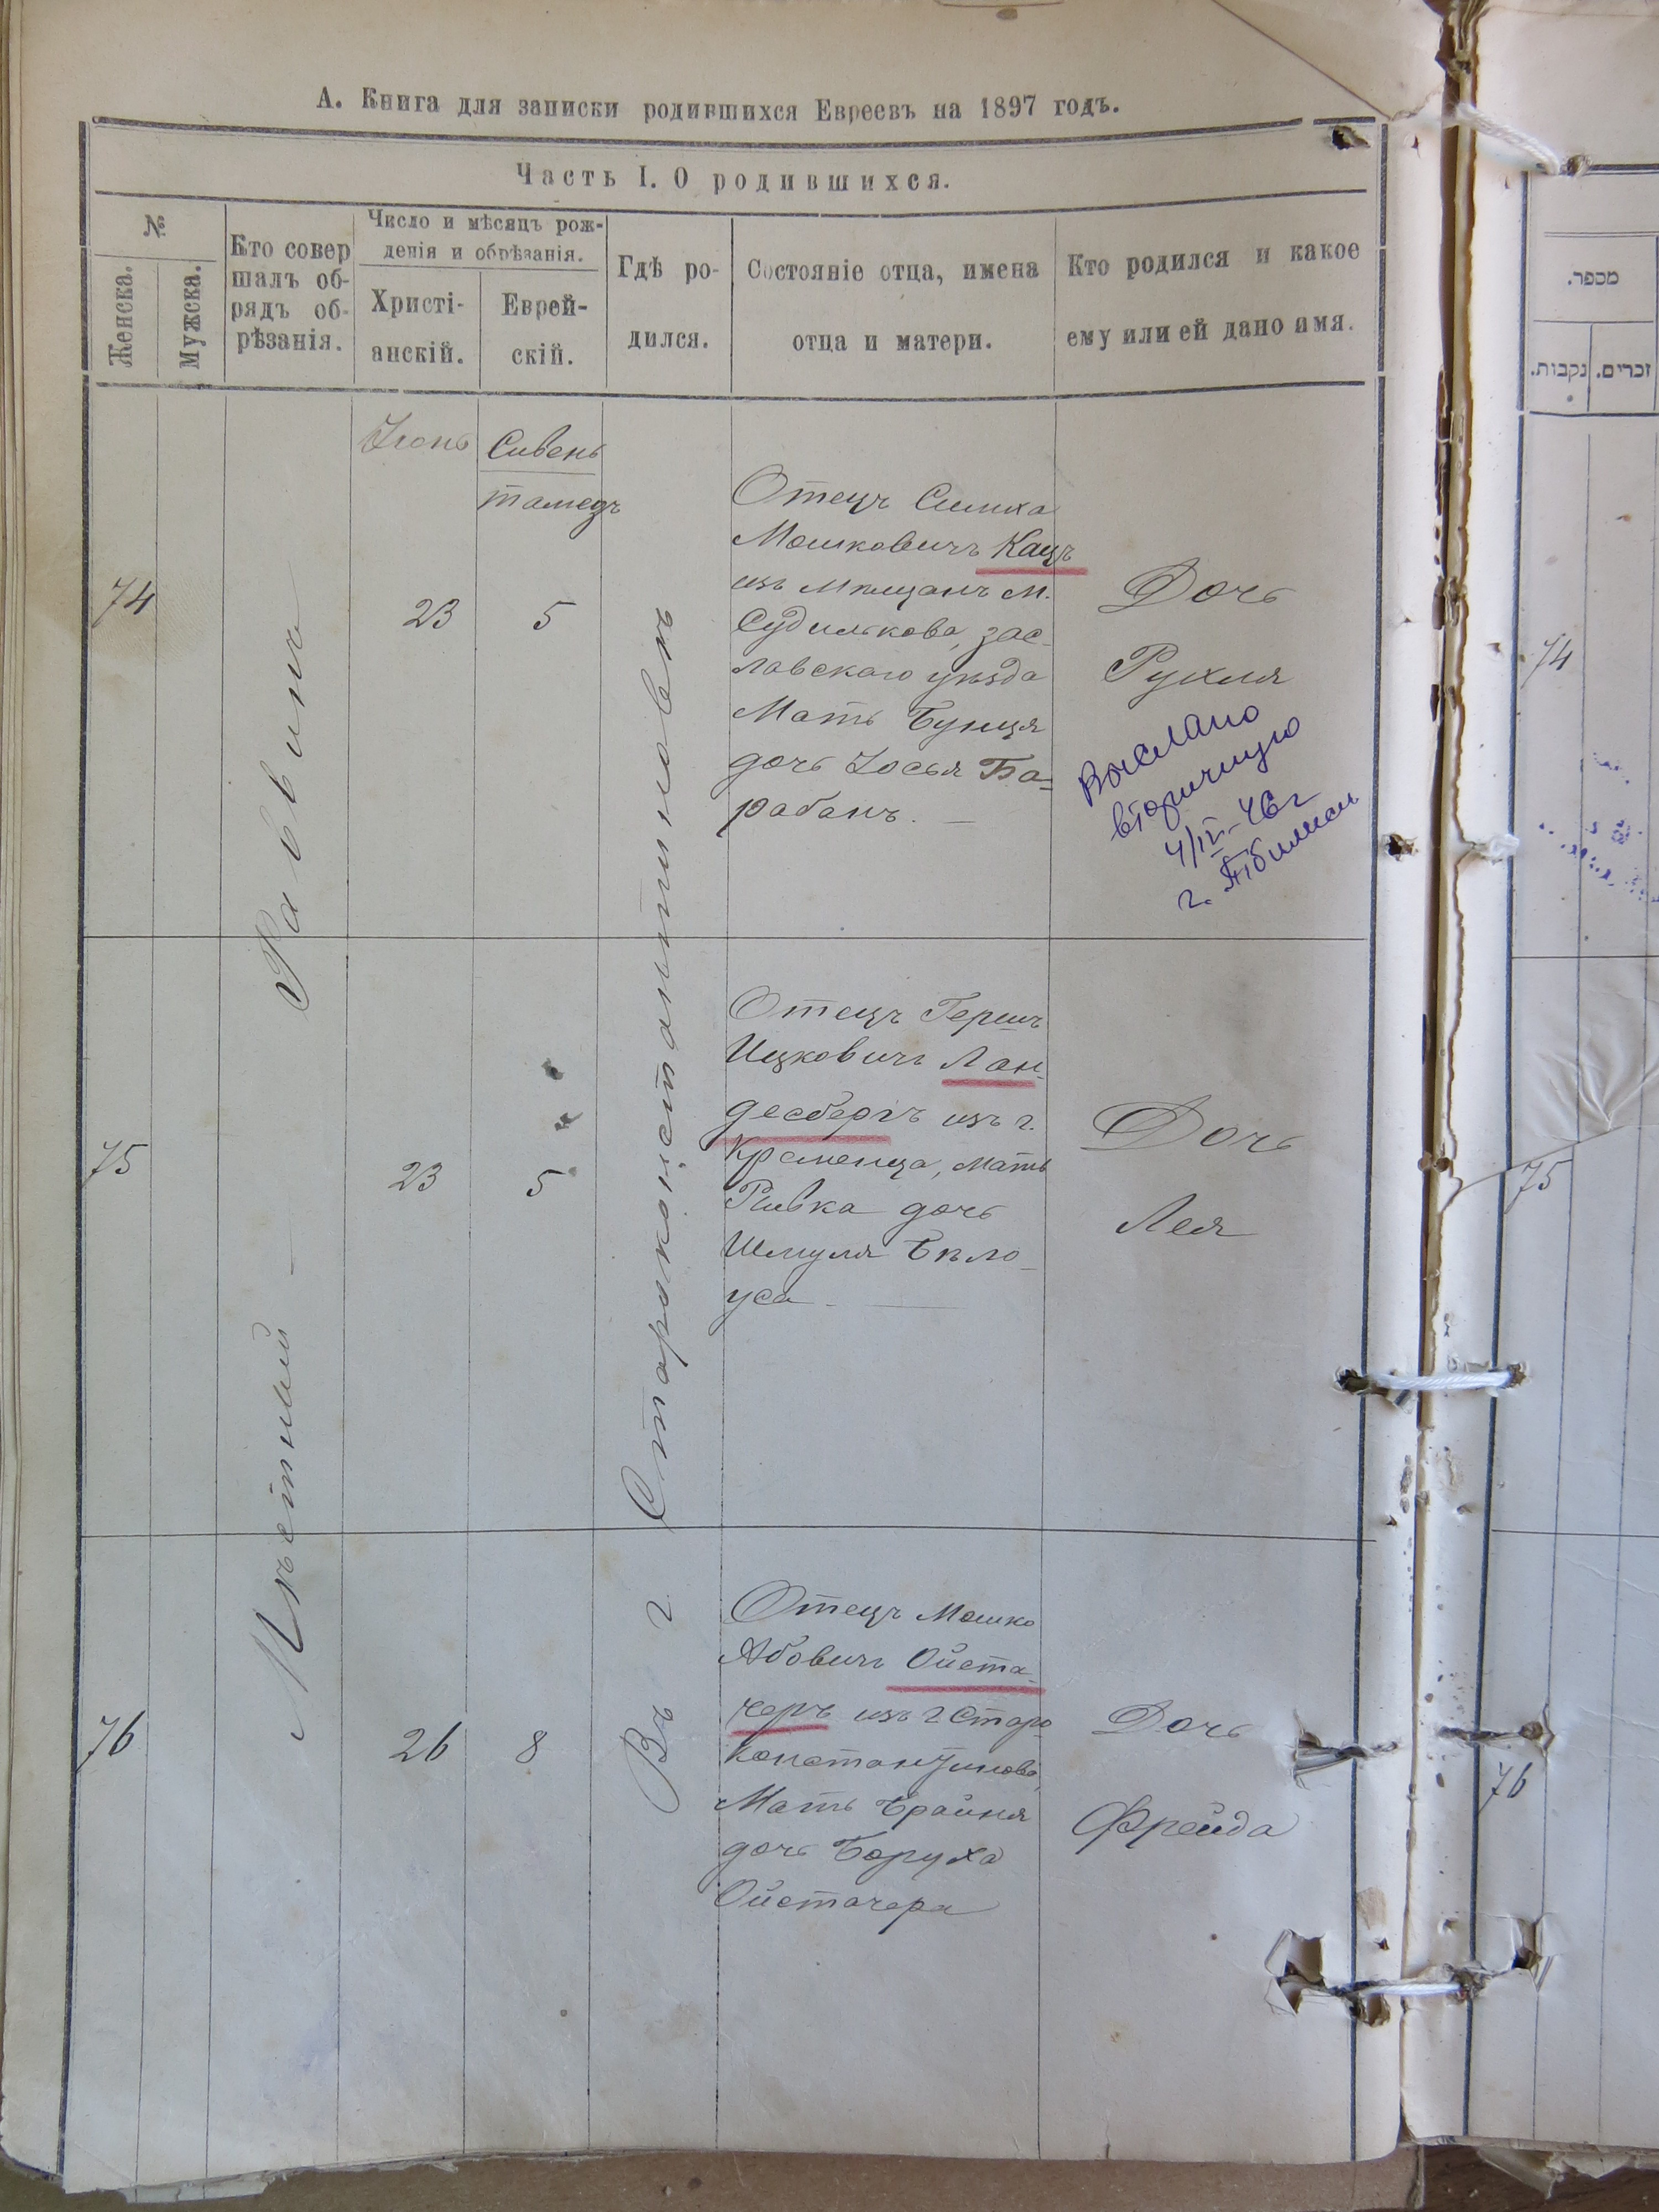 А. Книга для записки родившихся Евреевъ на 1897 годъ.
Часть I. О родившихся.
№
Женска.
Мужска.
Кто совер
шалъ об-
рядъ об-
рѣзанія.
Число и мѣсяцъ рож-
денія и обрѣзанія.
Христі-
анскій.
Еврей-
скій.
Гдѣ ро-
дился.
Состояніе отца, имена
отца и матери.
Кто родился и какое
ему или ей дано имя.
Мѣстный — Раввинъ
Въ г Староконстантиновѣ
Іюнь
Сивень
тамезъ
74
23
5
Отецъ Симха
Мошковичъ Кацъ
изъ мѣщанъ м.
Судилкова, зас-
лавскаго уѣзда
Мать Бунця
дочь Іосья Ба-
рабанъ. —
Дочь
Рухля
Выслано
вторичную
4/IV-46г
г. Тбилиси
75
23
5
Отецъ Гершъ
Ицковичъ Лан-
десбергъ изъ г.
Кременца, Мать
Ривка дочь
Шмуля Бѣло-
уса. —
Дочь
Лея
76
26
8
Отецъ Мошко
Абовичъ Ойста-
черъ изъ г Старо
константинова,
Мать Брайня
дочь Боруха
Ойстачера
Дочь
Фрейда
מספר.
נקבות.
זכרים.
74
75
76